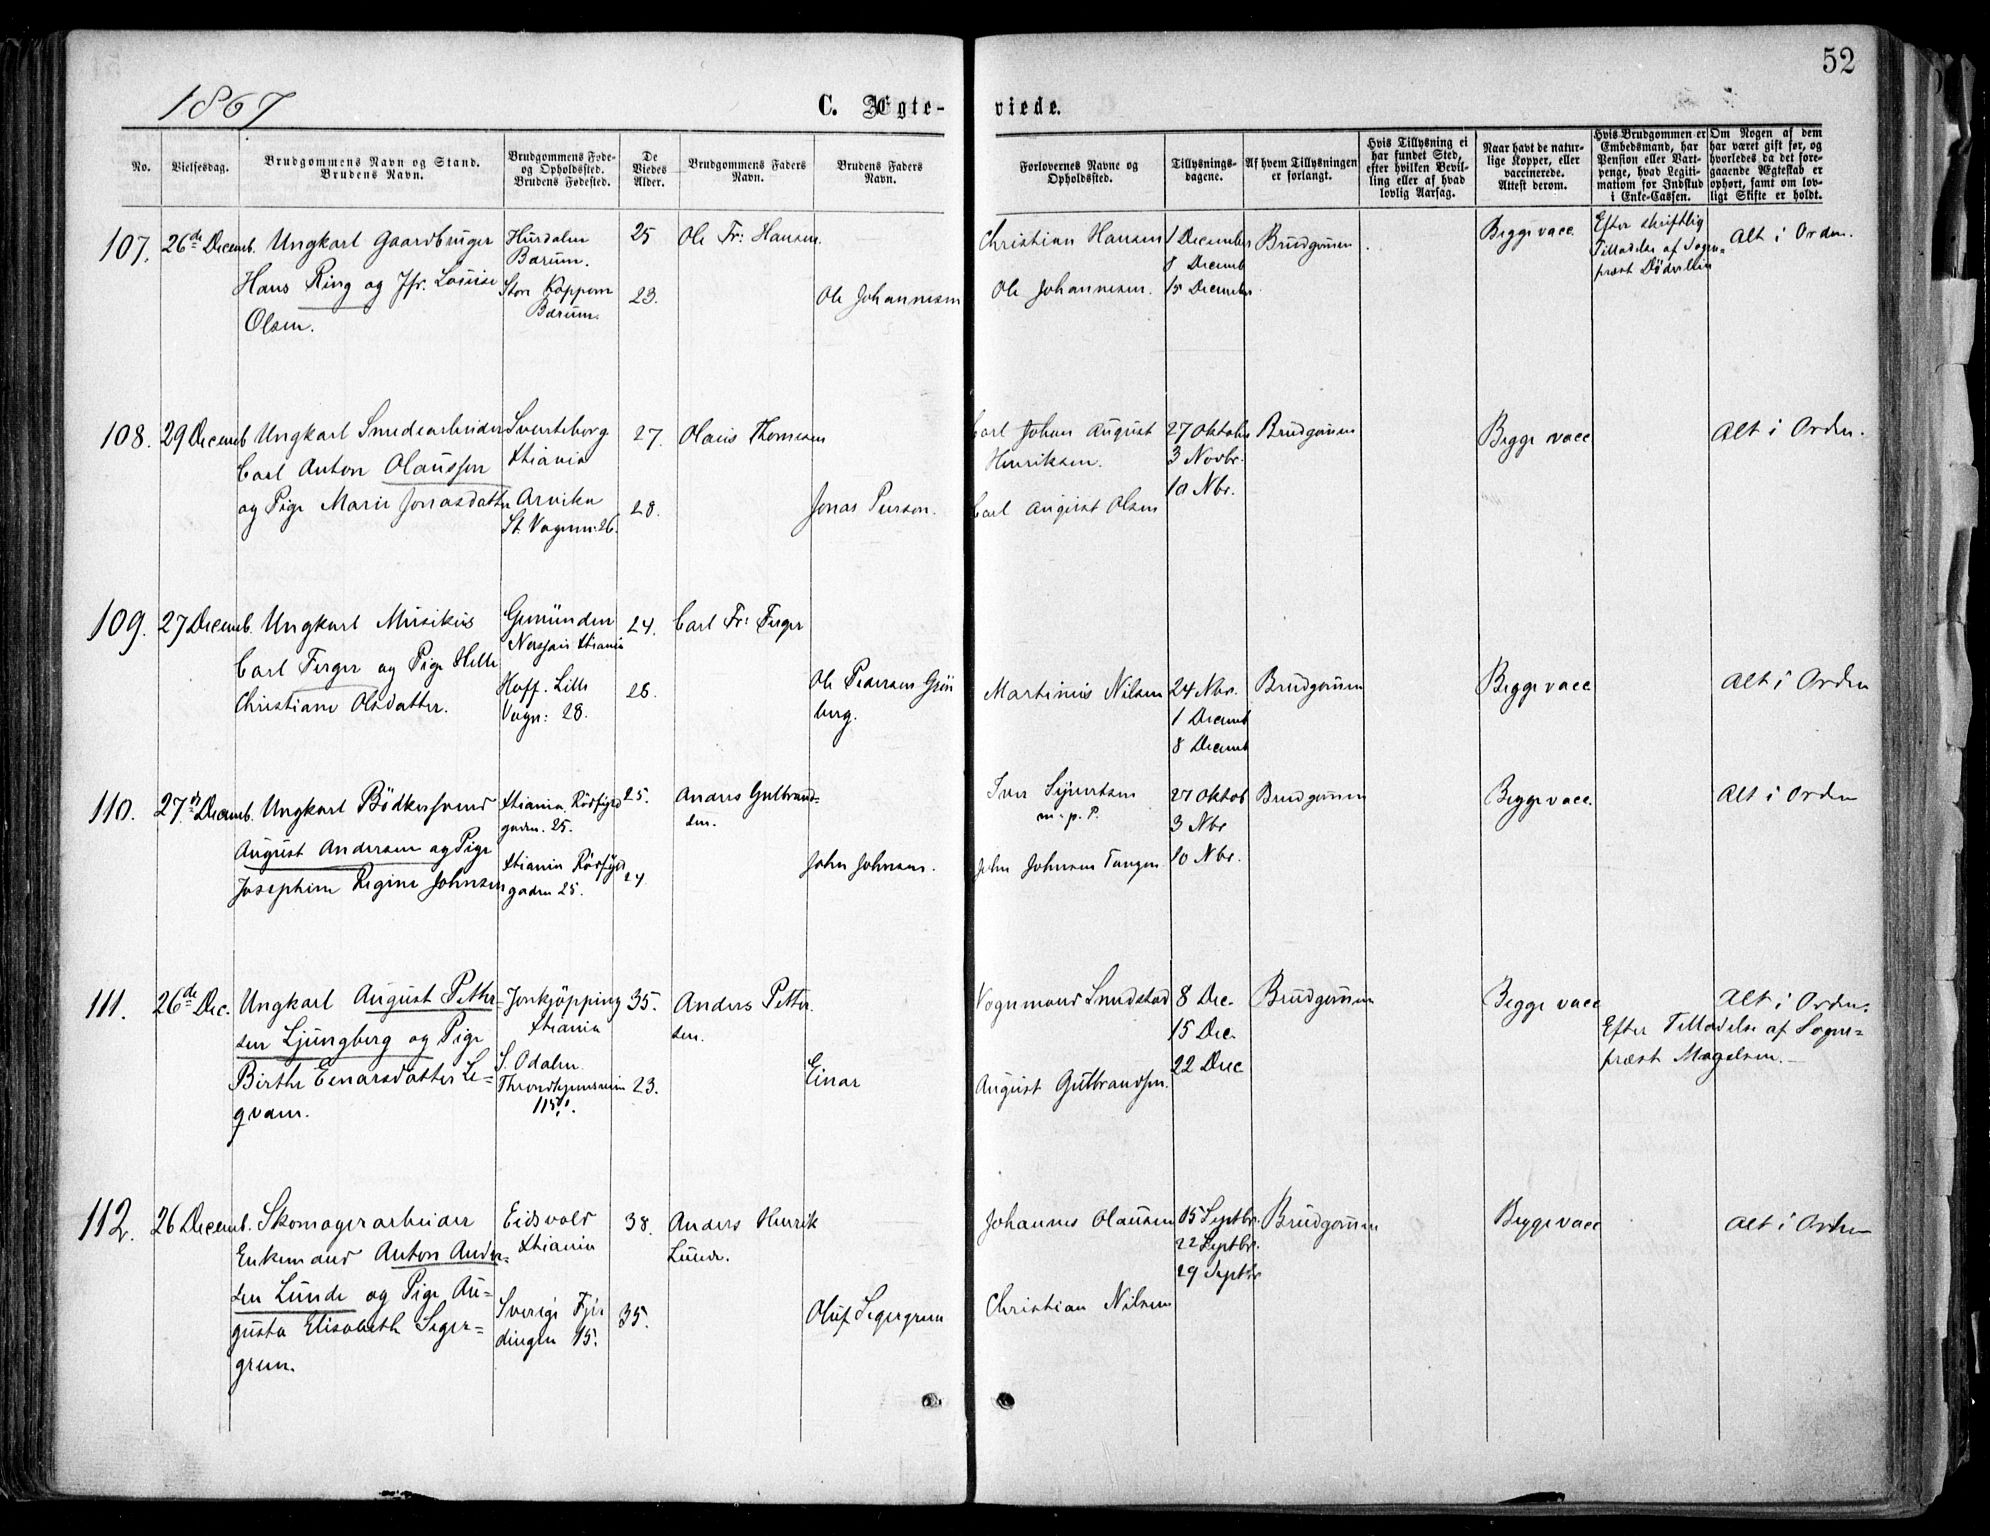 52
1867
C. Ægte-
viede.
No.
Vielsesdag.
Brudgommens Navn og Stand.
Brudens Navn.
Brudgommens Føde-
og Opholdssted.
Brudens Fødested.
De
Viedes
Alder.
Brudgommens Faders
Navn.
Brudens Faders
Navn.
Forlovernes Navne og
Opholdssted.
Tillysnings-
dagene.
Af hvem Tillysningen
er forlangt.
Hvis Tillysning ei
har fundet Sted,
efter hvilken Bevil-
ling eller af hvad
lovlig Aarsag.
Naar havt de natur-
lige Kopper, eller
vaccinerede.
Attest derom.
Hvis Brudgommen er
Embedsmand, har
Pension eller Vart-
penge, hvad Legiti-
mation for Indskud
i Enke-Cassen.
Om Nogen af dem
har været gift før, og
hvorledes da det fore-
gaaende Ægteskab er
ophørt, samt om lov-
ligt Skifte er holdt.
107.
26de Decemb.
Ungkarl Gaardbruger
Hans Ring og Jfr. Louise
Olsen.
Hurdalen
Bærum.
Store
Bærum.
25
23.
Ole Fr: Hansen.
Ole Johannesen
Christian Hansen
Ole Johannesen.
1 December
8 Decemb
15 December
Brudgomen
Begge vacc.
Efter skriftlig
Tilladelse af Sogne-
præst
Alt i Orden.
108.
29 Decemb
Ungkarl Smedearbeider
Carl Anton Olausson
og Pige Marie Jonasdatter
Xtiania
Arvika
St. Vognm: 26.
27.
28.
Olaus Thomesen
Jonas Person.
Carl Johan August
Henriksen.
Carl August Olsen
27 Oktober
3 Novbr.
10 Nbr.
Brudgomen
Begge vacc
Alt i Orden.
109.
27 Decemb.
Ungkarl Musikus
Carl Ferger og Pige Helle
Christiane Olsdatter.
Gemünden
Xtiania
Hoff. Lille
Vogn: 28.
24.
26.
Carl Fr: Ferger
Ole Pedersen Grön
berg.
Martinus Nilsen
24 Nbr.
1 Decemb
8 Decemb
Brudgomen
Begge vacc
Alt i Orden
110.
27de Decemb.
Ungkarl Bödkersvend
August Andersen og Pige
Josephine Regine Johnsen
Xtiania Rödfyld
gaden. 25.
Xtiania Rödfyld
gaden 25.
25.
24.
Anders Gulbrand-
sen.
John Johnsen.
Iver Syvertsen
m. p. P.
John Johnsen Tangen
27 Oktob
3 Nbr
10 Nbr.
Brudgomen
Begge vacc.
Alt i Orden
111.
26de Dec.
Ungkarl August Petter-
sen Ljungberg og Pige
Birthe Eenarsdatter Le-
gvam.
Jonkjöpping
Xtiania
S. Odalen.
Throndhjemsveien
35.
23.
Anders Petter
sen.
Einar
Vognmand Smedstad
August Gulbrandsen.
8 Dec.
15 Dec.
22 Dec
Brudgomen
Begge vacc
Alt i Orden.
Efter Tilladelse af Sogne-
præst Magelsen.
112.
26 Decemb.
Skomagerarbeider
Enkemand Anton Ander-
sen Lunde og Pige Au-
gusta Elisabeth Seger-
gren.
Eidsvold
Xtiania
Sverige Fjer
dingen 15.
38.
35.
Anders Henrik
Lunde.
Oluf Segergren
Johannes Olausen
Christian Nilsen
15 Septbr.
22 Septbr.
29 Septbr
Brudgomen
Begge vacc
Alt i Orden